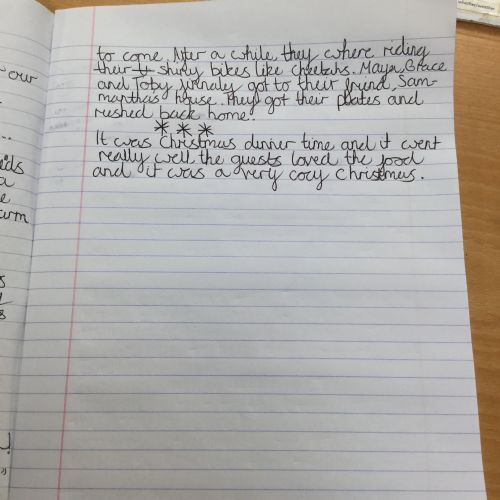 to come. After a while they where riding
their shiny bikes like cheetahs. Maya, Grace
and Toby finnaly got to their friend, Sam-
manthas house. They got their plates and
rushed back home.
***
It was Christmas dinner time and it went
really well the guests loved the food
and it was a very cozy Christmas.
our
...
ids
a
e
arm
s
s
!